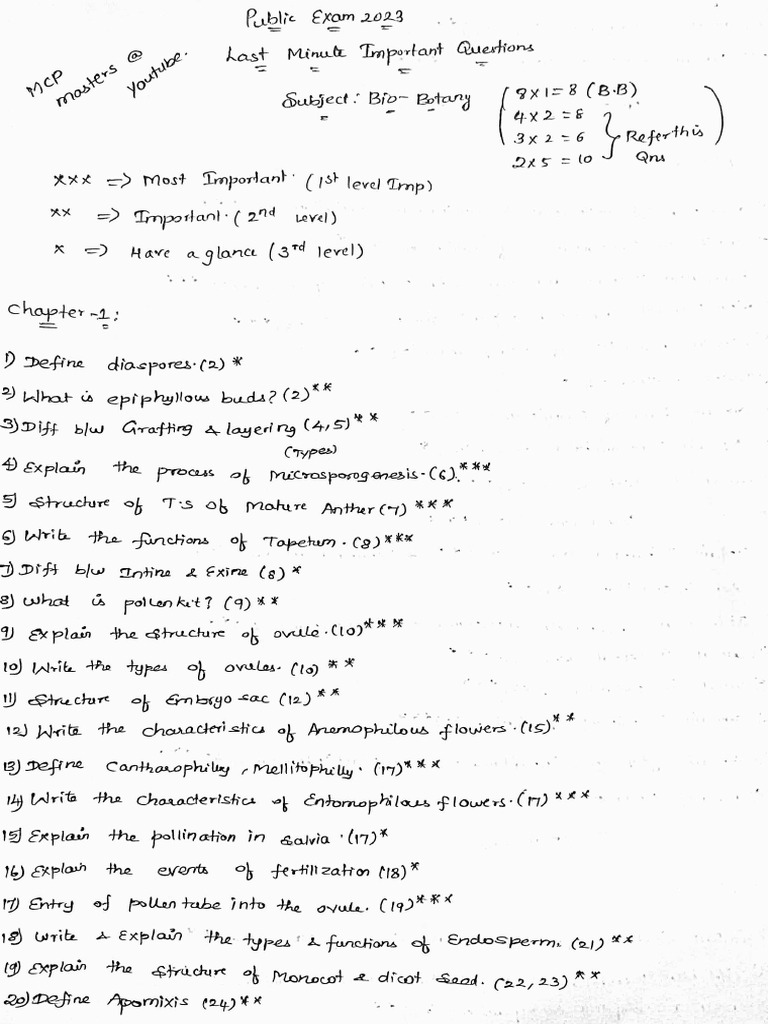 Public Exam 2023
MCP masters @ youtube.
Last Minute Important Questions
Subject: Bio-Botany
8x1=8 (B.B)
4x2=8
3x2=6
2x5=10
Refer this Qns
*** => Most Important. (1st level Imp)
** => Important. (2nd Level)
* => Have a glance (3rd level)
Chapter-1:
1) Define diaspores. (2) *
2) What is epiphyllous buds? (2) **
3) Diff b/w Grafting & layering (4,5) **
(Types)
4) Explain the process of Microsporogenesis. (6). ***
5) Structure of T.S of Mature Anther (7) ***
6) Write the functions of Tapetum. (8) ***
7) Diff b/w Intine & Exine (8) *
8) What is pollenkit? (9) **
9) Explain the structure of ovule. (10) ***
10) Write the types of ovules. (10) **
11) Structure of Embryo sac (12) **
12) Write the characteristics of Anemophilous flowers. (15). **
13) Define Cantharophilly, Mellitophilly. (17) ***
14) Write the characteristics of Entomophilous flowers. (17) ***
15) Explain the pollination in Salvia. (17) *
16) Explain the events of fertilization (18) *
17) Entry of pollen tube into the ovule. (19) ***
18) Write & Explain the types & functions of Endosperm. (21) **
19) Explain the structure of Monocot & dicot Seed. (22, 23) **
20) Define Apomixis (24) **